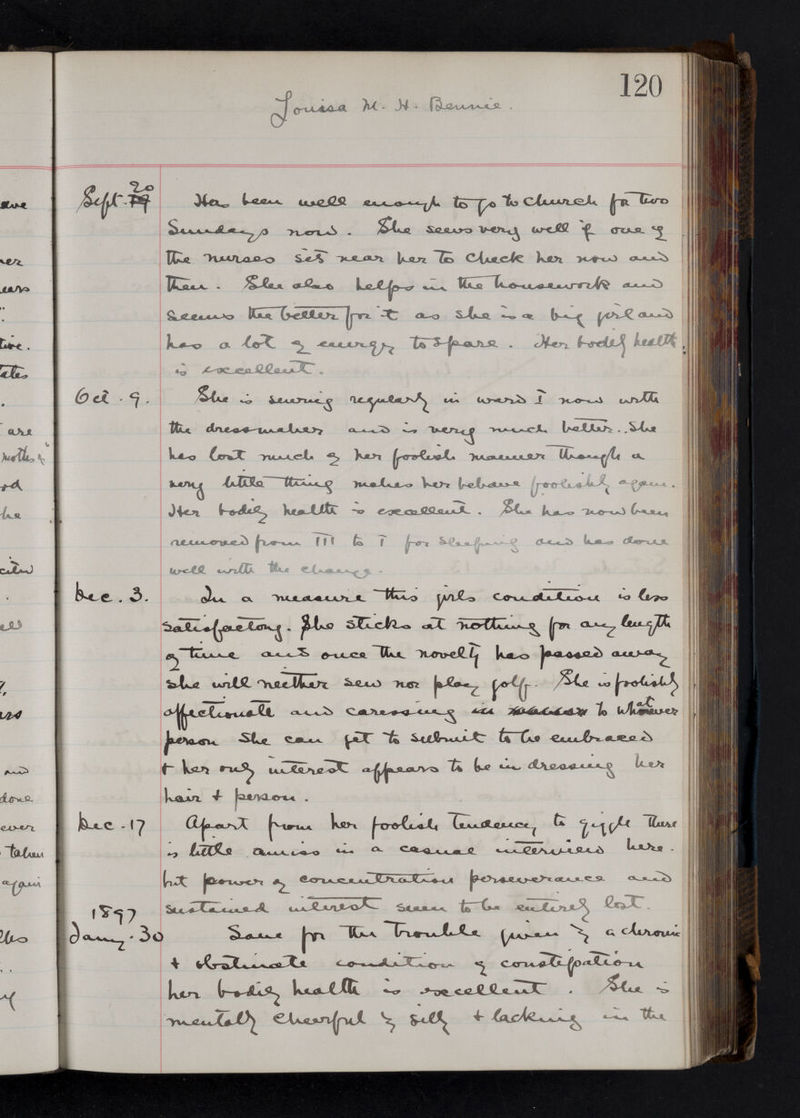 120
Louisa M. H. Bennie.
Sept. 20 Has been well enough to go to Church for two
Sundays now. She sews very well if one of
the nurses sits near her to check her now and
then. She also helps in the housework and
seems the better for it as she is a big girl and
has a lot of energy to spare. Her bodily health
is excellent.
Oct. 9. She is sewing regularly in ward I now with
the dressmaker and is very much better. She
has lost much of her foolish manner though a
very little thing makes her behave foolishly again.
Her bodily health is excellent. She has now been
removed from III to I for sleeping and has done
well with the change.
Dec. 3. In a measure this girls condition is less
satisfactory. She sticks at nothing for any length
of time and once the novelty has passed away
she will neither sew nor play golf. She is foolishly
affectionate and caressing to whatever
person she can get to submit to be embraced
& her only interest appears to be in dressing her
hair & person.
Dec. 17 Apart from her foolish tendency to giggle there
is little amiss in a casual interview here.
but power of concentration perseverance and
sustained interest seem to be entirely lost.
1897
Jany. 30 Save for the trouble given by a chronic
& obstinate condition of constipation
her bodily health is excellent. She is
mentally cheerful & silly & lacking in the
are
done
ever
taken
again